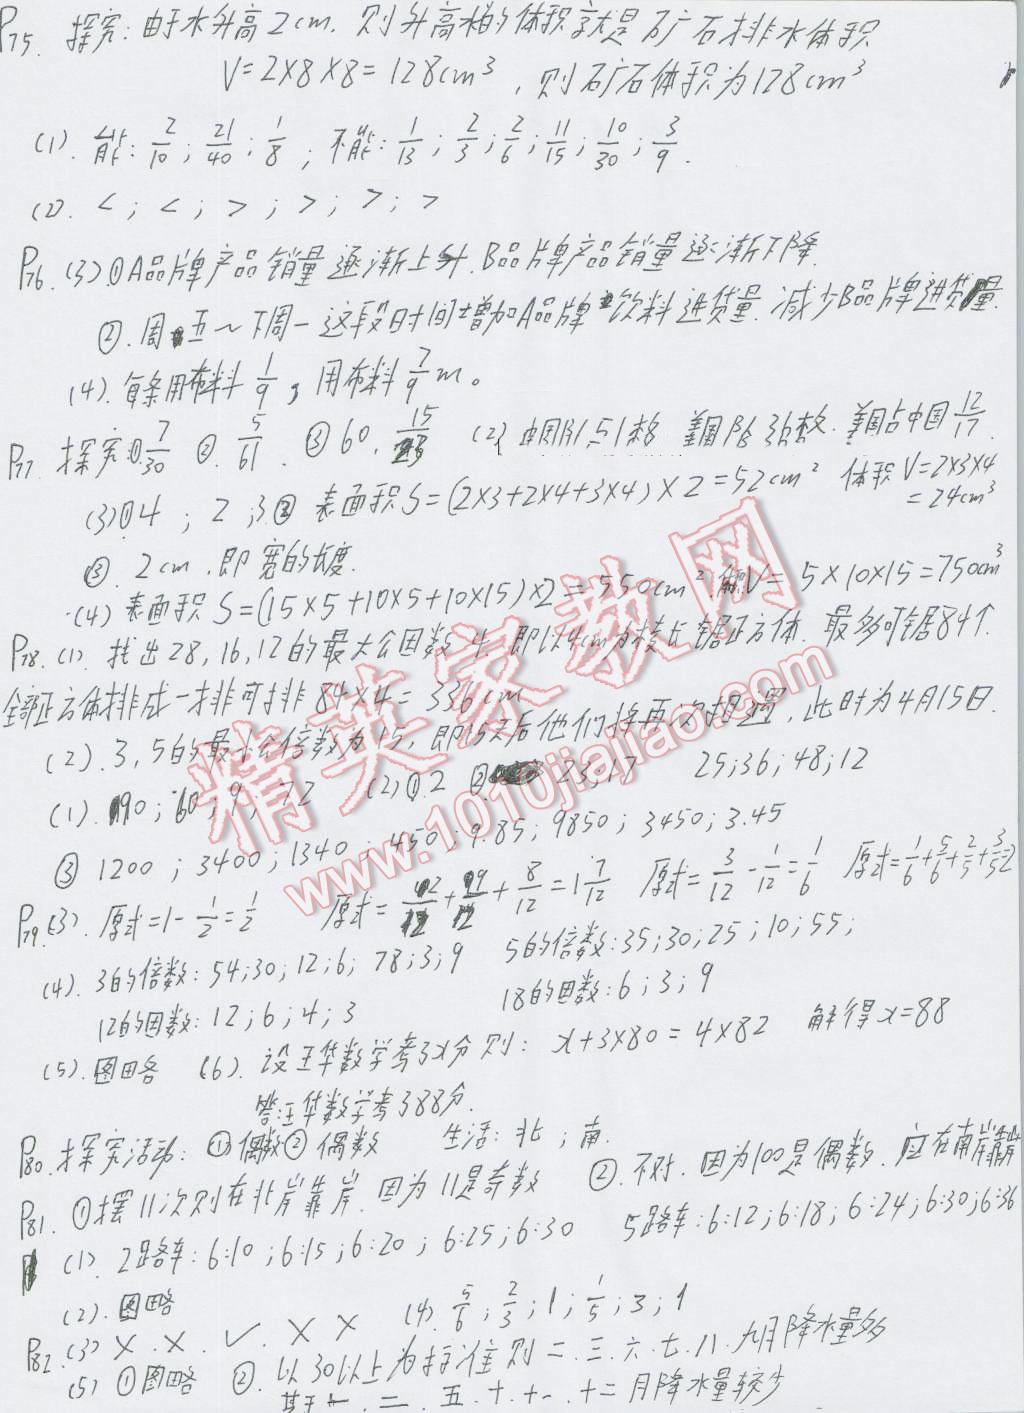 P75. 探究:由于水升高2cm.则升高水的体积就是矿石排水体积
V=2×8×8=128cm³,则矿石体积为128cm³
(1). 能: 2/10; 21/40; 1/8; 不能: 1/13; 2/3; 2/6; 11/15; 10/30; 3/9.
(2). <; <; >; >; >; >
P76. (3)①A品牌产品销量逐渐上升.B品牌产品销量逐渐下降.
②.周五~下周一这段时间增加A品牌饮料进货量.减少B品牌进货量.
(4). 每条用布料 1/9, 用布料 7/9 m。
P77. 探究①7/30 ②. 5/61. ③60. 15 (2) 中国队51枚 美国队36枚. 美国占中国 12/17.
(3)①4; 2; 3 ② 表面积S=(2×3+2×4+3×4)×2=52cm² 体积V=2×3×4
=24cm³
③. 2cm.即宽的长度.
(4) 表面积S=(15×5+10×5+10×15)×2=550cm². V=5×10×15=750cm³
P78. (1). 找出28,16,12的最大公因数4.即以4cm为棱长锯正方体.最多可锯84个.
全部正方体排成一排可排84×4=336cm
(2). 3,5的最小公倍数为15,即15天后他们将再次相遇,此时为4月15日.
(1). 90; 60; 9; 72 (2)①.2 ②. 23;17 25;36;48;12
③ 1200; 3400; 1340; 450; 9.85; 9850; 3450; 3.45
P79. (3). 原式=1-1/2=1/2 原式= + + 8/12=1 7/12 原式=3/12-1/12=1/6 原式=1/6+5/6+2/5+3/5=2
(4). 3的倍数: 54;30;12;6; 78;3;9 5的倍数:35;30;25;10;55;
12的因数: 12;6;4;3 18的因数:6;3;9
(5).图略 (6). 设王华数学考了x分则: x+3×80=4×82 解得x=88
答:王华数学考了88分.
P80. 探究活动: ①偶数② 偶数 生活:北;南.
P81. ①摆11次则在北岸靠岸.因为11是奇数 ②.不对.因为100是偶数.应在南岸靠岸
(1). 2路车:6:10;6:15;6:20; 6:25;6:30 5路车:6:12;6:18;6:24;6:30;6:36
(2).图略
P82. (3) × . × . ✓ . × × (4). 5/6; 2/3; 1; 1/5; 3; 1
(5) ①图略 ②.以30以上为标准则二.三.六.七.八.九月降水量多
其于一.二.五.十.十一.十二月降水量较少
精英家教网
www.1010jiajiao.com